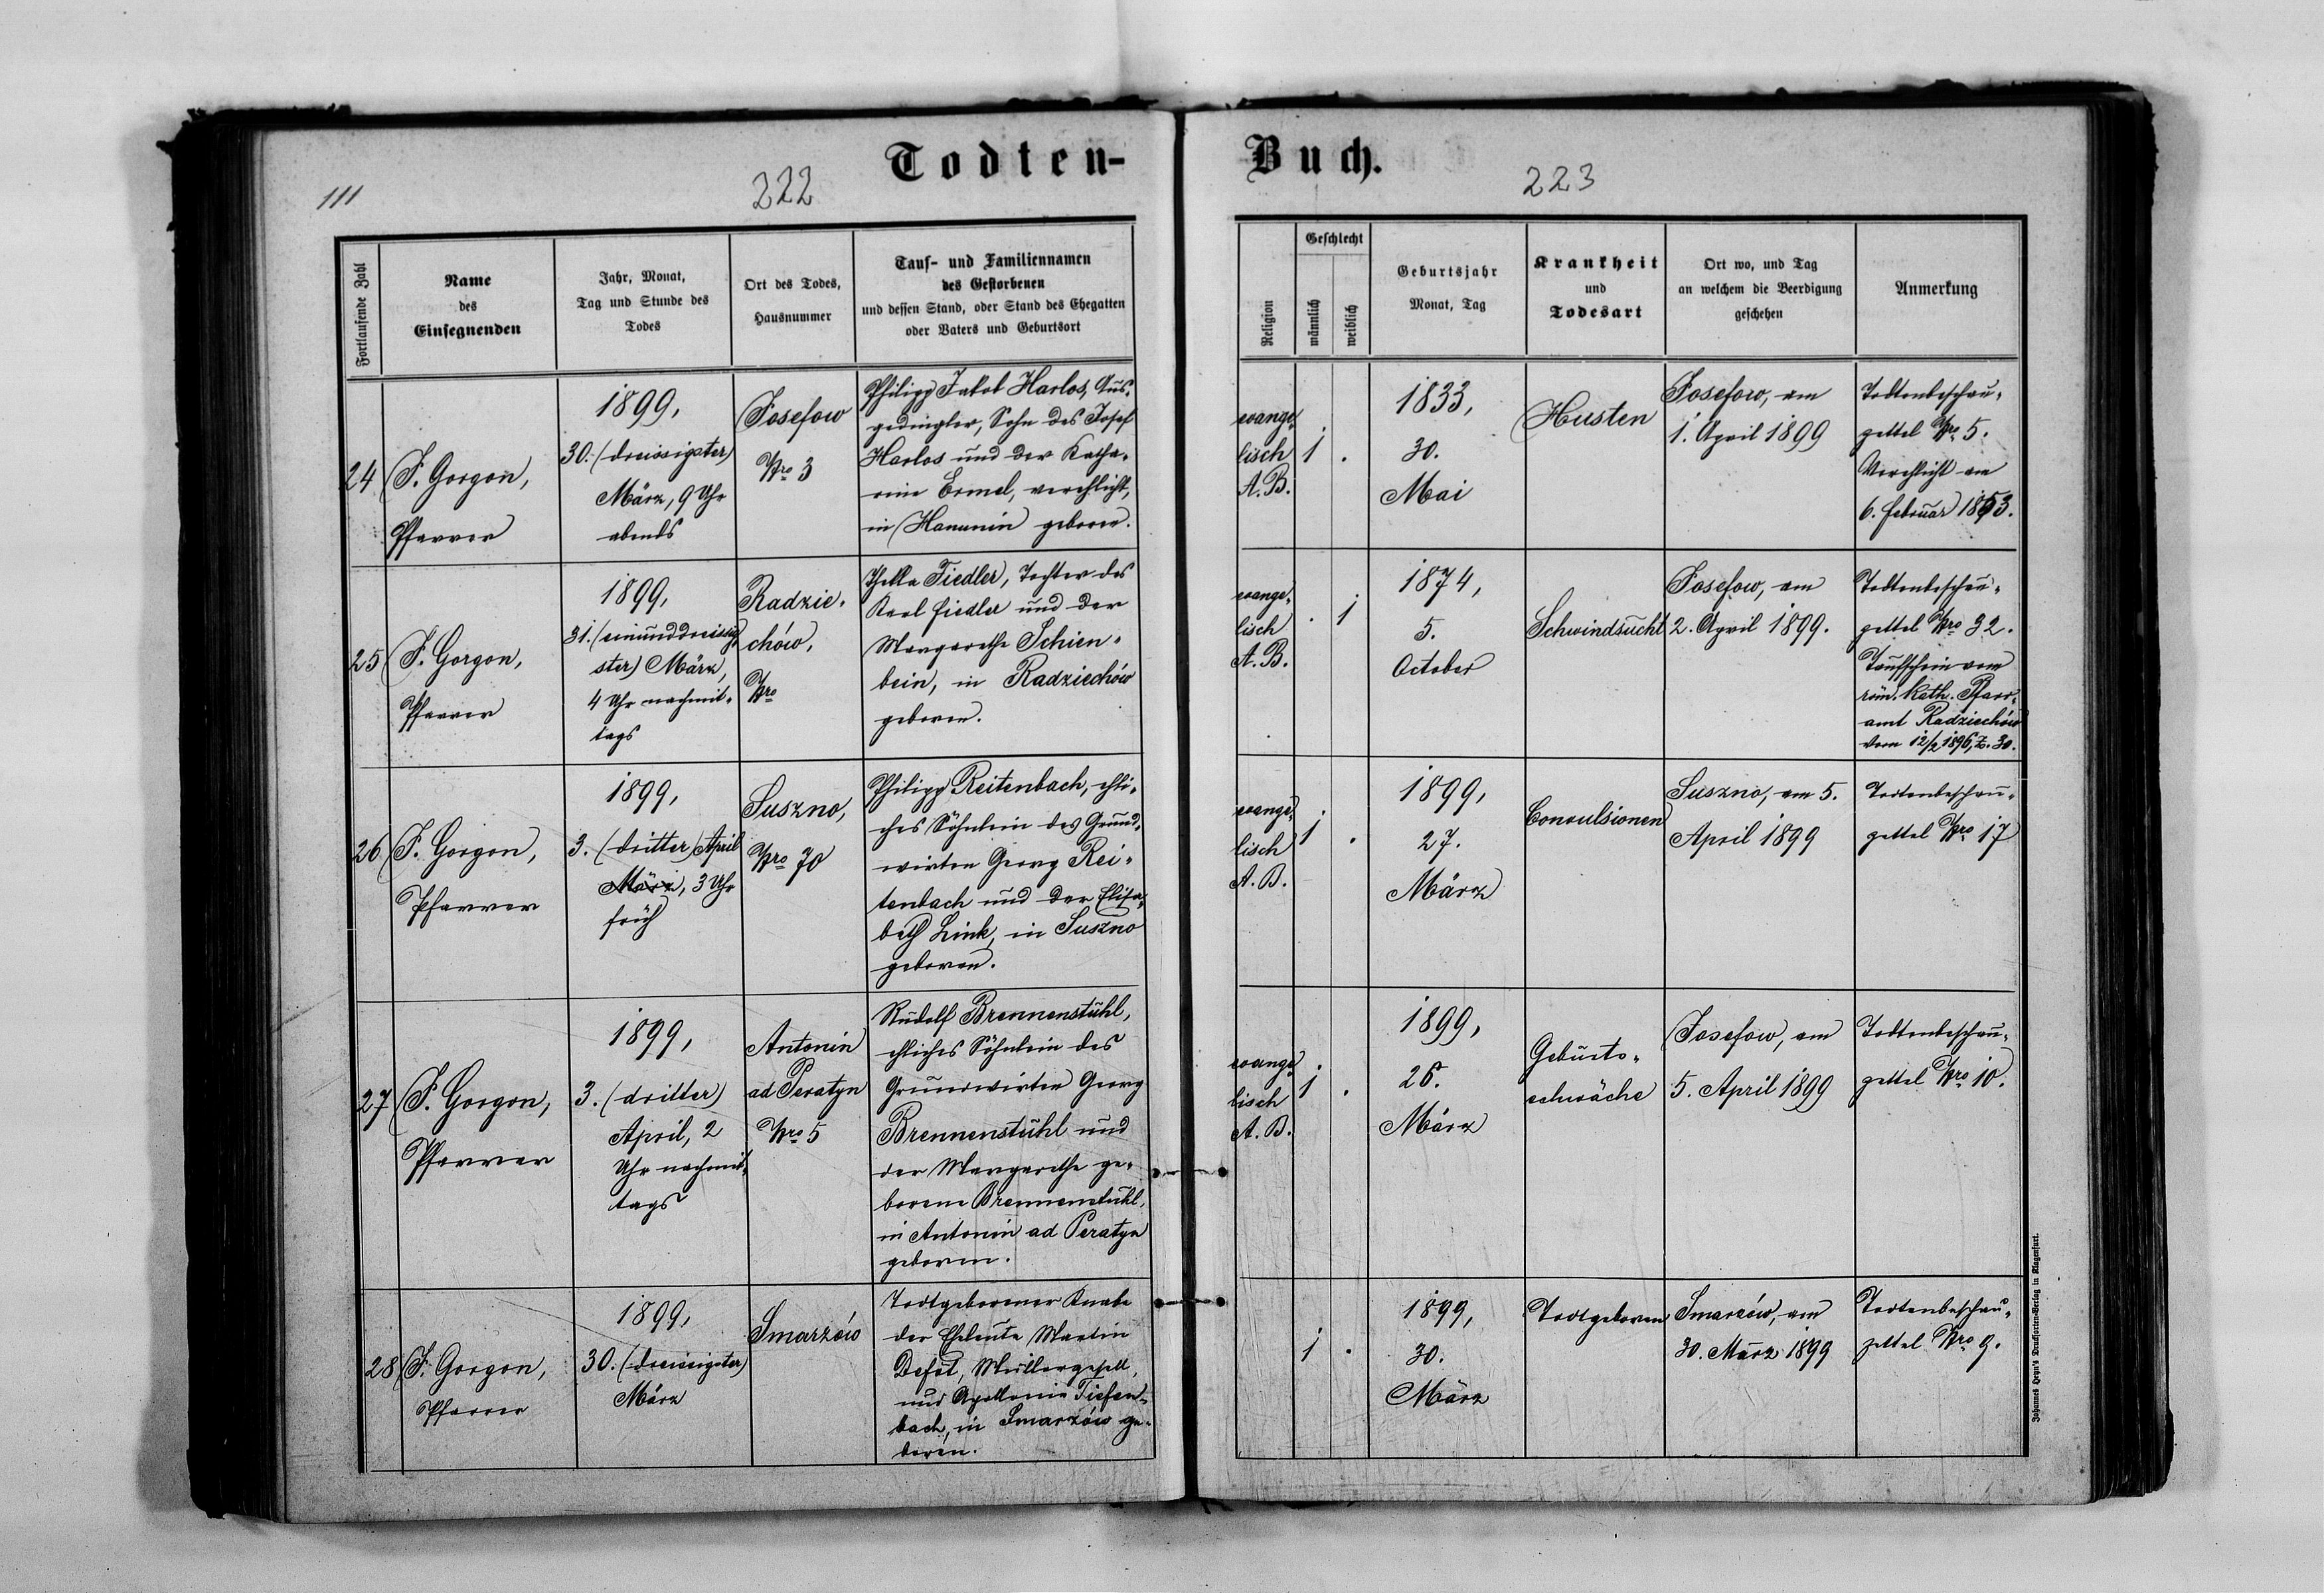 Todten-
Buch.
111
222
223
Fortlaufende Zahl
Name
des
Einsegnenden
Jahr, Monat,
Tag und Stunde des
Todes
Ort des Todes,
Hausnummer
Tauf- und Familiennamen
des Gestorbenen
und dessen Stand, oder Stand des Ehegatten
oder Vaters und Geburtsort
Religion
Geschlecht
männlich
weiblich
Geburtsjahr
Monat, Tag
Krankheit
und
Todesart
Ort wo, und Tag
an welchem die Beerdigung
geschehen
Anmerkung
24
F. Gorgon,
Pfarrer
1899,
30. (dreissigster)
März, 9 Uhr
abends
Josefow
Nro 3
Philipp Jakob Harlos, Aus-
gedingler, Sohn des Josef
Harlos und der Katha-
rine Ermel, verehlicht,
in Hanunin geboren.
evange-
lisch
A. B.
1
.
1833,
30.
Mai
Husten
Josefow, am
1. April 1899
Todtenbeschau-
zettel Nro 5.
Verehlicht am
6. Februar 1853.
25
F. Gorgon,
Pfarrer
1899,
31. (einunddreissig-
ster) März,
4 Uhr nachmit-
tags
Radzie-
chów,
Nro
Thekla Fiedler, Tochter des
Karl Fiedler und der
Margarethe Schien-
bein, in Radziechów
geboren.
evange-
lisch
A. B.
.
1
1874,
5.
October
Schwindsucht
Josefow, am
2. April 1899.
Todtenbeschau-
zettel Nro 32.
Taufschein vom
röm. kath. Pfarr-
amt Radziechów
vom 12/2 1896, Z. 30.
26
F. Gorgon,
Pfarrer
1899,
3. (dritter) April
März, 3 Uhr
früh
Suszno,
Nro 70
Philipp Reitenbach, ehli-
ches Söhnlein des Grund-
wirten Georg Rei-
tenbach und der Elisa-
beth Link, in Suszno
geboren.
evange-
lisch
A. B.
1
.
1899,
27.
März
Convulsionen
Suszno, am 5.
April 1899
Todtenbeschau-
zettel Nro 17
27
F. Gorgon,
Pfarrer
1899,
3. (dritter)
April, 2
Uhr nachmit-
tags
Antonin
ad Peratyn
Nro 5
Rudolf Brennenstuhl,
ehliches Söhnlein des
Grundwirten Georg
Brennenstuhl und
der Margarethe ge-
borene Brennenstuhl,
in Antonin ad Peratyn
geboren.
evange-
lisch
A. B.
1
.
1899,
26.
März
Geburts-
schwäche
Josefow, am
5. April 1899
Todtenbeschau-
zettel Nro 10.
28
F. Gorgon,
Pfarrer
1899,
30. (dreissigster)
März
Smarzów
Todtgeborener Knabe
der Eheleute Martin
Müllergesell,
und Apollonia Tiefen-
bach, in Smarzów ge-
boren.
1
.
1899,
30.
März
Todtgeboren
Smarzów, am
30. März 1899
Todtenbeschau-
zettel Nro 9.
Johannes Heyn's Drucksorten-Verlag in Klagenfurt.